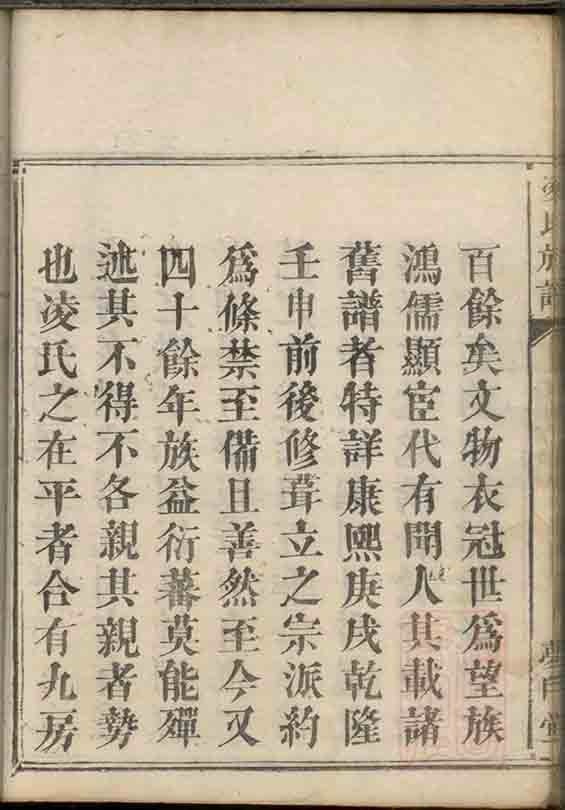 氏族譜
百餘矣文物衣冠世爲望族
鴻儒顯宦代有聞人其載諸
舊譜者特詳康熙庚戌乾隆
壬申前後修葺立之宗派約
爲條禁至備且善然至今又
四十餘年族益衍蕃莫能殫
述其不得不各親其親者勢
也凌氏之在平者合有九房